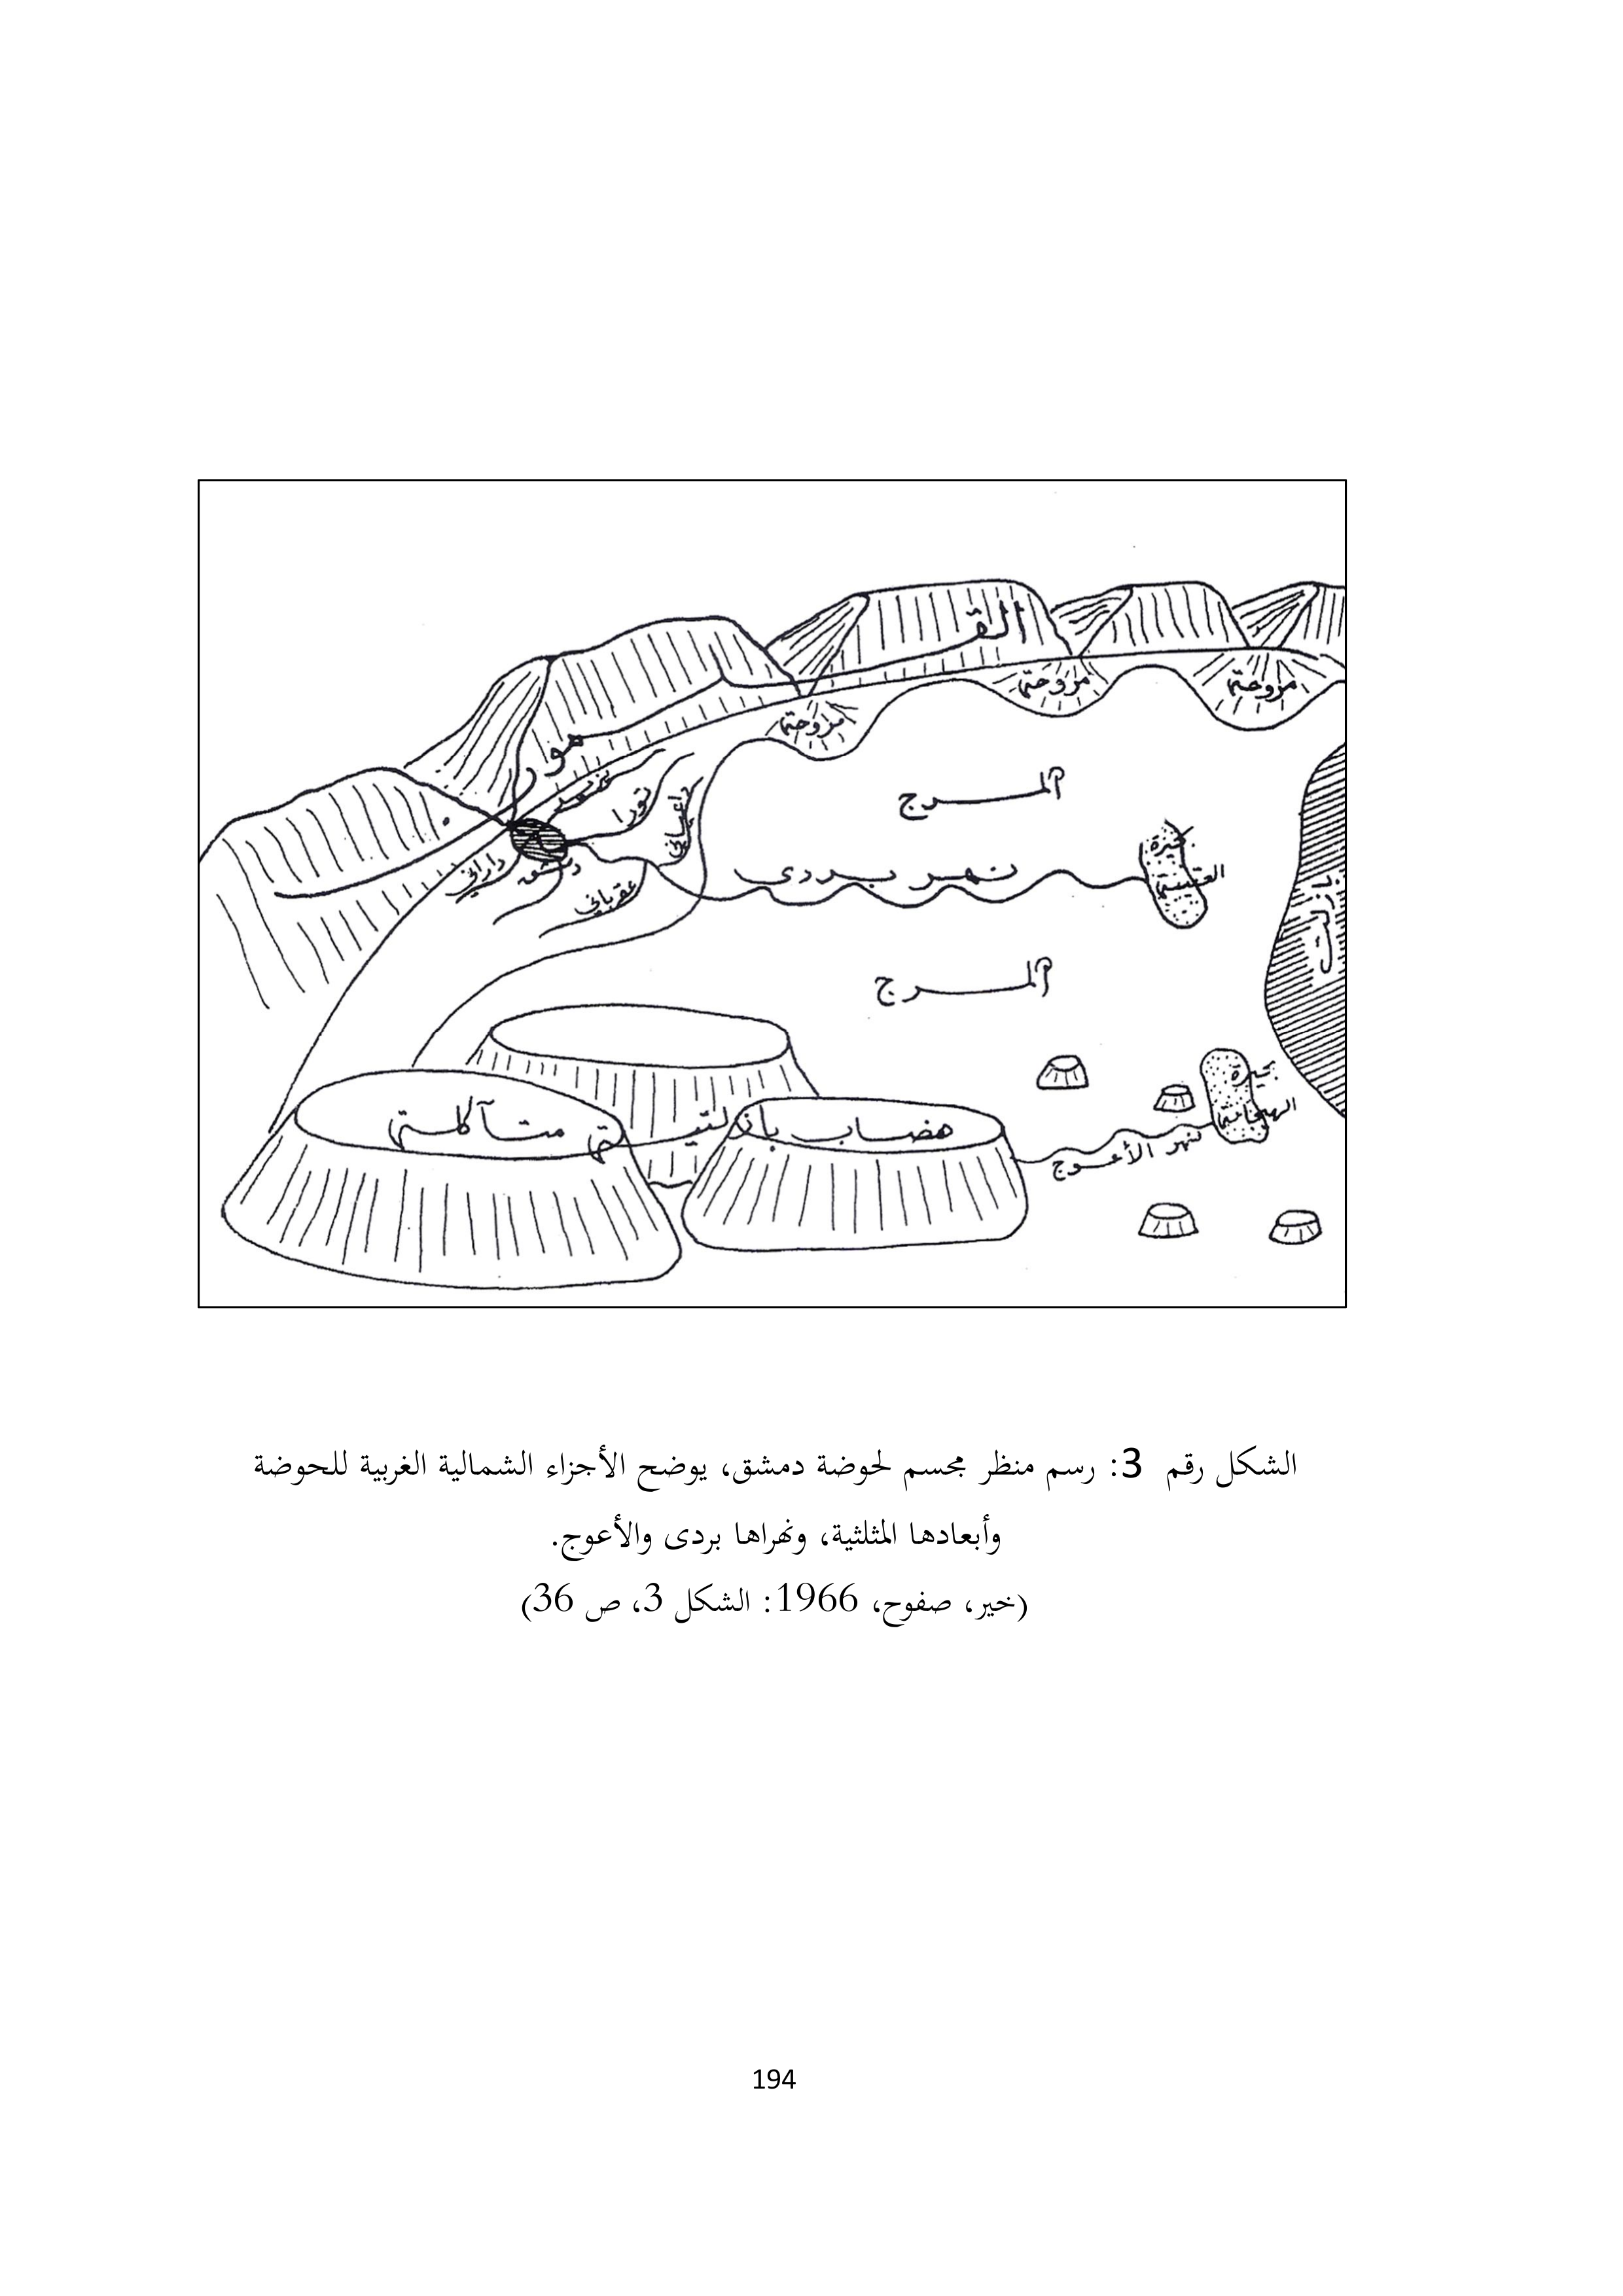 القـــمون
مزوحة
مزوحة
مزوحة
تورا
داعياني
المرج
داراني
دمشق
عقرباني
نهر بردى
بحيرة
العتيبة
بازلت
المرج
بحيرة
الهيجانة
نهر الأعوج
هضاب بازلتية متآكلة
الشكل رقم 3: رسم منظر مجسم لحوضة دمشق، يوضح الأجزاء الشمالية الغربية للحوضة
وأبعادها المثلثية، ونهراها بردى والأعوج.
(خير، صفوح، 1966: الشكل 3، ص 36)
194